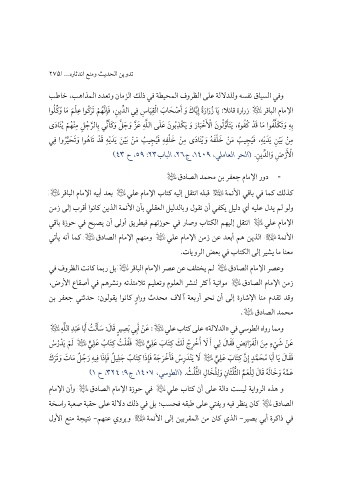 تدوين الحديث ومنع اندثاره... ٢٧٥|
وفي السياق نفسه وللدلالة على الظروف المحيطة في ذلك الزمان وتعدد المذاهب، خاطب
الإمام الباقر زرارة قائلا: يَا زُرَارَةُ إِيَّاكَ وَ أَصْحَابَ الْقِيَاسِ فِي الدِّينِ، فَإِنَّهُمْ تَرَكُوا عِلْمَ مَا وُكِّلُوا
بِهِ وَتَكَلَّفُوا مَا قَدْ كُفُوهُ، يَتَأَوَّلُونَ الْأَخْبَارَ وَ يَكْذِبُونَ عَلَى اللَّهِ عَزَّ وَجَلَّ وَكَأَنِّي بِالرَّجُلِ مِنْهُمْ يُنَادَى
مِنْ بَيْنِ يَدَيْهِ، فَيُجِيبُ مِنْ خَلْفِهِ وَيُنَادَى مِنْ خَلْفِهِ فَيُجِيبُ مِنْ بَيْنِ يَدَيْهِ قَدْ تَاهُوا وَتَحَيَّرُوا فِي
الْأَرْضِ وَالدِّينِ. (الحر العاملي، ١٤٠٩، ج٢٦، الباب٢٣: ٥٩، ح ٤٣)
- دور الإمام جعفر بن محمد الصادق
كذلك كما في باقي الأئمة قبله انتقل إليه كتاب الإمام علي بعد أبيه الإمام الباقر
ولو لم يدل عليه أي دليل يكفي أن نقول وبالدليل العقلي بأن الأئمة الذين كانوا أقرب إلى زمن
الإمام علي انتقل إليهم الكتاب وصار في حوزتهم فبطريق أولى أن يصبح في حوزة باقي
الأئمة الذين هم أبعد عن زمن الإمام علي ومنهم الإمام الصادق كما أنه يأتي
معنا ما يشير إلى الكتاب في بعض الروايات.
وعصر الإمام الصادق لم يختلف عن عصر الإمام الباقر بل ربما كانت الظروف في
زمن الإمام الصادق مواتية أكثر لنشر العلوم وتعليم تلامذته ونشرهم في أصقاع الأرض،
وقد تقدم منا الإشارة إلى أن نحو أربعة آلاف محدث وراوٍ كانوا يقولون: حدثني جعفر بن
محمد الصادق.
ومما رواه الطوسي في «الدلالة» على كتاب علي : عَنْ أَبِي بَصِيرٍ قَالَ: سَأَلْتُ أَبَا عَبْدِ اللَّهِ
عَنْ شَيْءٍ مِنَ الْفَرَائِضِ فَقَالَ لِي أَ لَا أُخْرِجُ لَكَ كِتَابَ عَلِيٍّ فَقُلْتُ كِتَابُ عَلِيٍّ لَمْ يَدْرُسْ
فَقَالَ يَا أَبَا مُحَمَّدٍ إِنَّ كِتَابَ عَلِيٍّ لَا يَنْدَرِسُ فَأَخْرَجَهُ فَإِذَا كِتَابٌ جَلِيلٌ فَإِذَا فِيهِ رَجُلٌ مَاتَ وَتَرَكَ
عَمَّهُ وَخَالَهُ قَالَ لِلْعَمِّ الثُّلُثَانِ وَلِلْخَالِ الثُّلُثُ. (الطوسي، ١٤٠٧، ج٩: ٣٢٤، ح ١)
و هذه الرواية ليست دالة على أن كتاب علي في حوزة الإمام الصادق وأن الإمام
الصادق كان ينظر فيه ويفتي على طبقه فحسب؛ بل في ذلك دلالة على حقبة صعبة راسخة
في ذاكرة أبي بصير- الذي كان من المقربين إلى الأئمة ويروي عنهم- نتيجة منع الأول